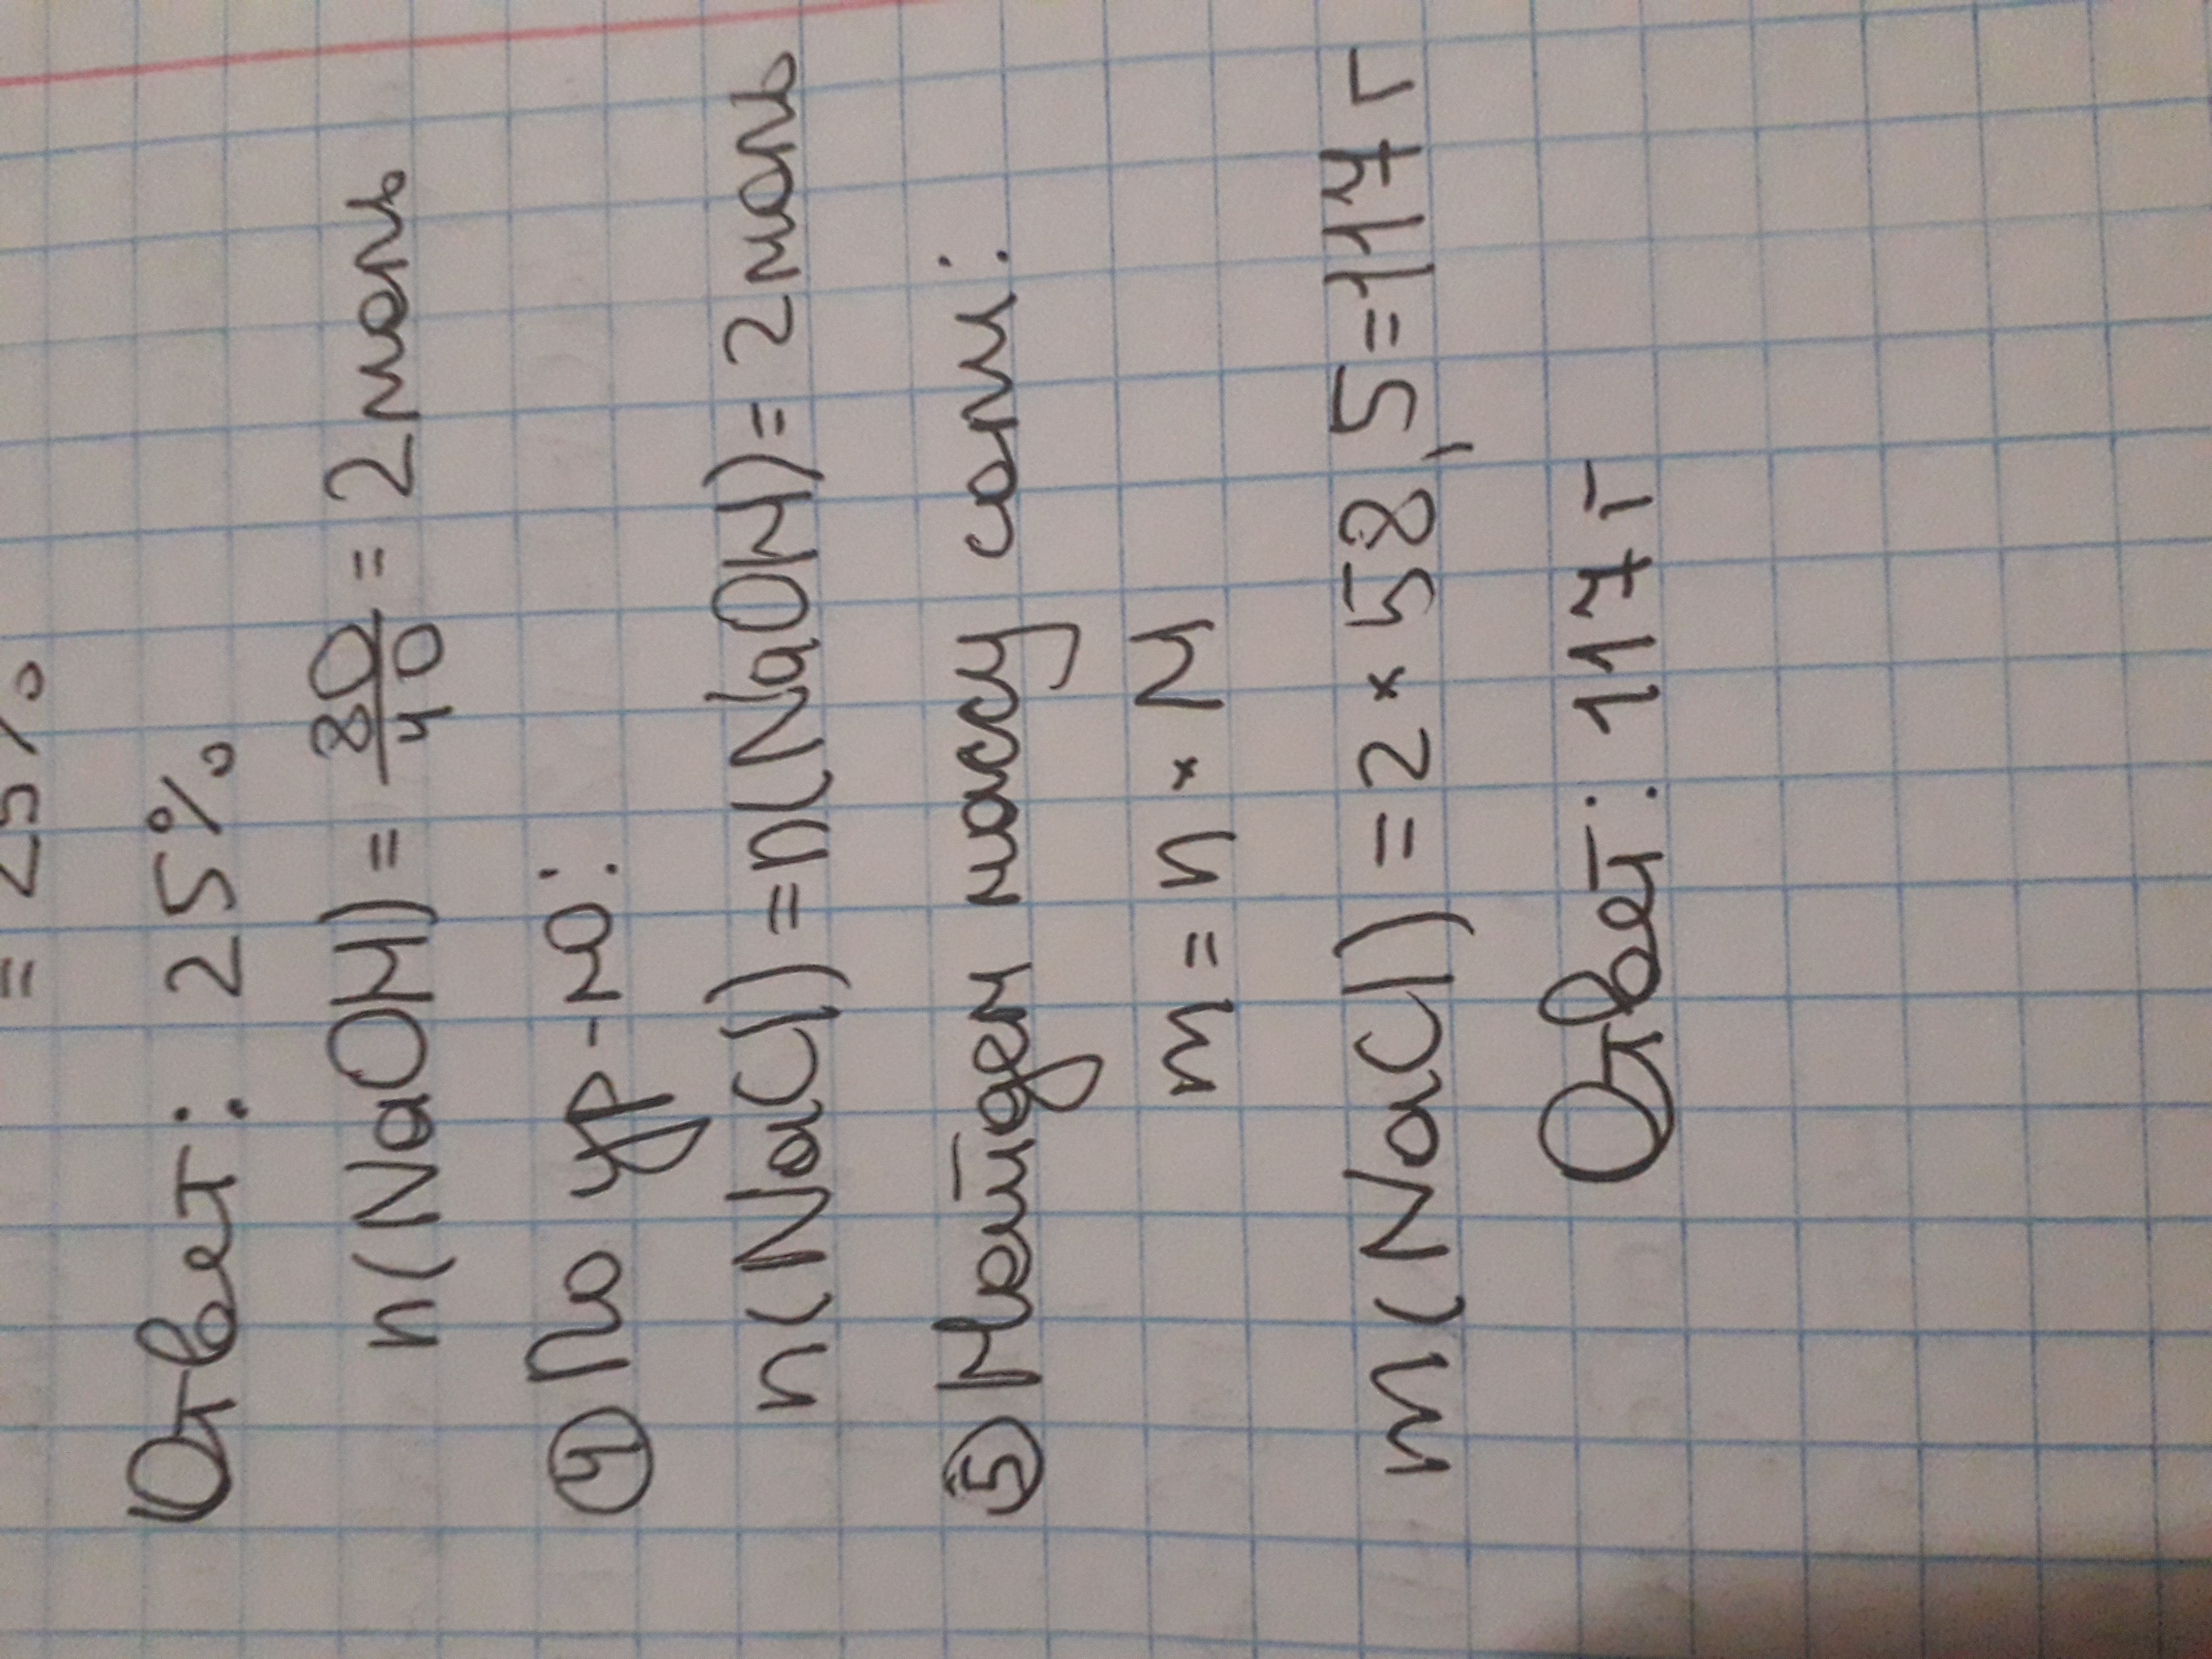 = 25%
Ответ: 25%
n(NaOH) = 80/40 = 2 моль
④ По ур-ю:
n(NaCl) = n(NaOH) = 2 моль
⑤ Найдем массу соли:
m = n × M
m(NaCl) = 2 × 58,5 = 117 г
Ответ: 117 г